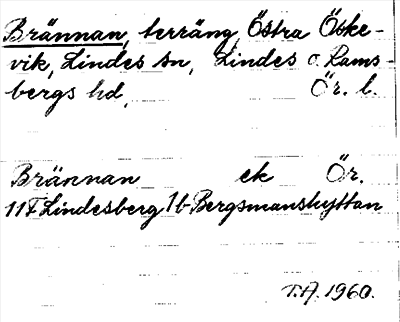 Brännan, terräng, Östra Öske-
vik, Lindes sn, Lindes o. Rams-
bergs hd, Ör. l.
Brännan ek Ör.
11F Lindesberg 1b Bergsmanshyttan
T.A. 1960.